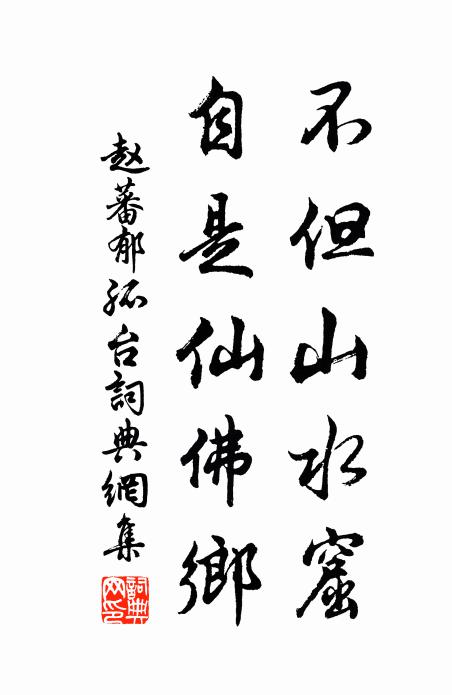 不但山水窟
自是仙佛鄉
赵蕃郁孤台詞典網集
詞典网印